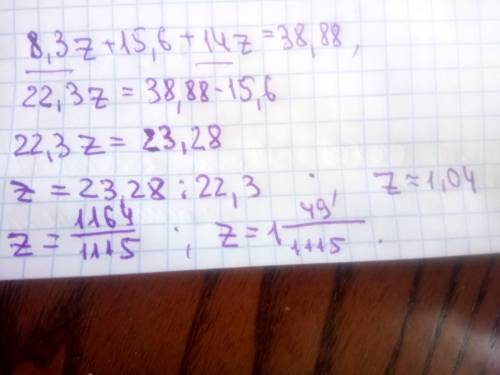 8,3z+15,6+14z=38,88,
22,3z=38,88-15,6
22,3z=23,28
z=23,28:22,3 ; z≈1,04
z=1164/1115 ; z=1 49/1115.